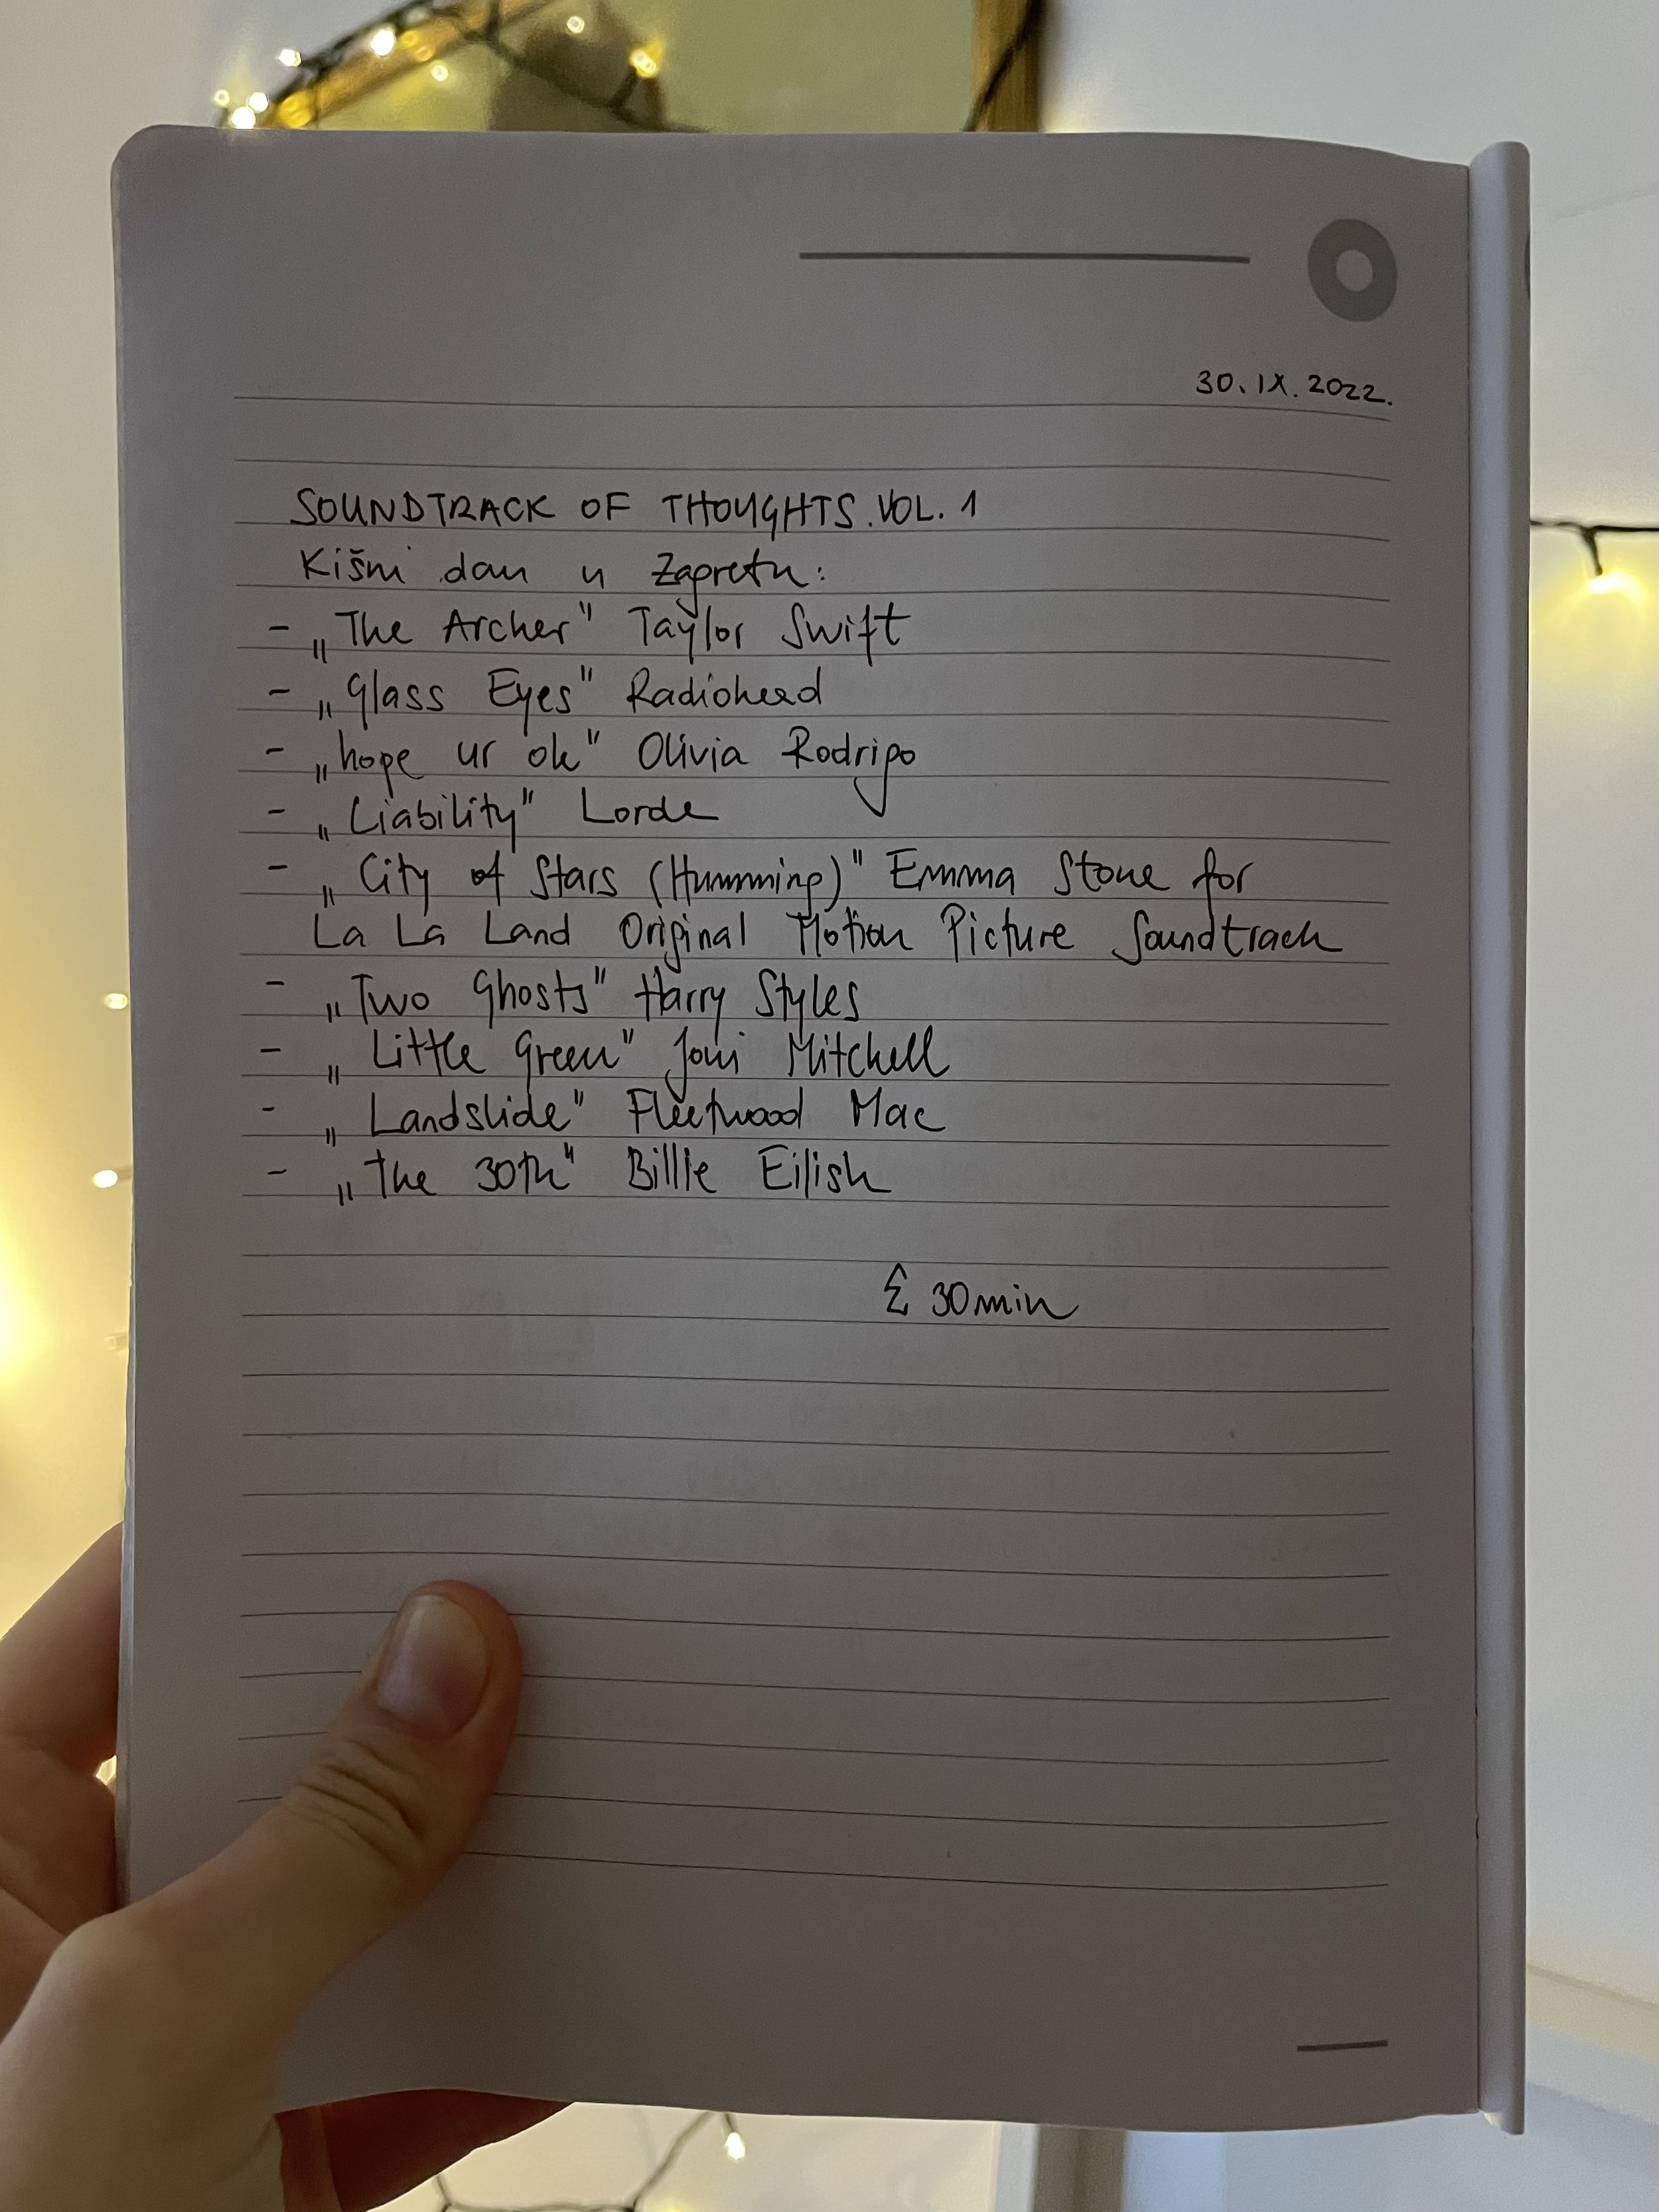 30. IX. 2022.
SOUNDTRACK OF THOUGHTS. VOL. 1
Kišni dan u Zagrebu:
- „The Archer" Taylor Swift
- „Glass Eyes" Radiohead
- „hope ur ok" Olivia Rodrigo
- „Liability" Lorde
- „City of Stars (Humming)" Emma Stone for
La La Land Original Motion Picture Soundtrack
- „Two Ghosts" Harry Styles
- „Little Green" Joni Mitchell
- „Landslide" Fleetwood Mac
- „The 30th" Billie Eilish
Σ 30min